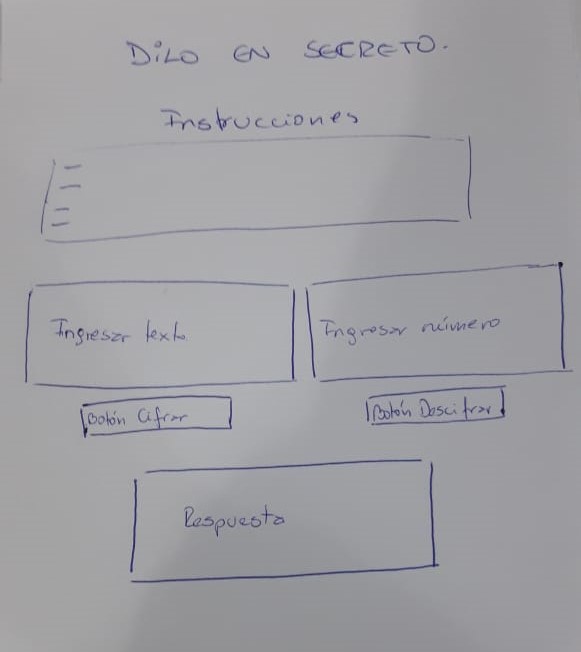 DiLO EN SECRETO.
Instrucciones
Ingresar texto
Ingresar número
Botón Cifrar
Botón Descifrar
Respuesta